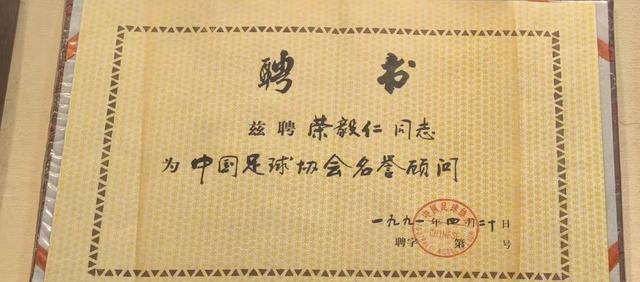 聘书
兹聘 荣毅仁 同志
为 中国足球协会名誉顾问
一九九一年四月二十日
聘字 第 号
CHINESE